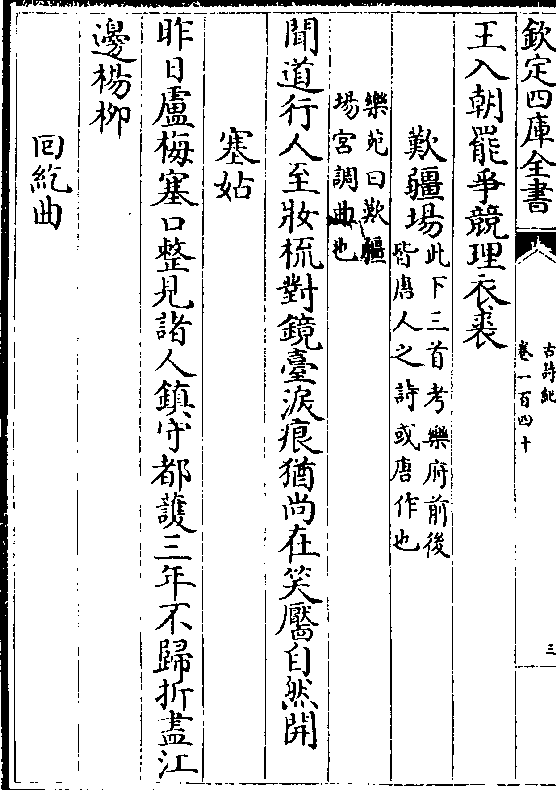 欽定四庫全書
古詩紀
卷一百四十
三
王入朝罷爭競理衣裘
歎疆場此下三首考樂府前後
皆唐人之詩或唐作也
樂苑曰歎疆
場宮調曲也
聞道行人至妝梳對鏡臺淚痕猶尚在笑靨自然開
塞姑
昨日盧梅塞口整見諸人鎮守都護三年不歸折盡江
邊楊柳
回紇曲